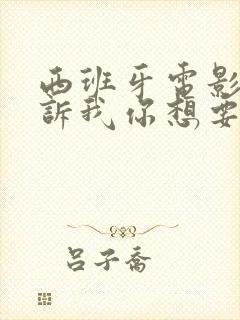 西班牙電影
訴我你想要
呂子喬